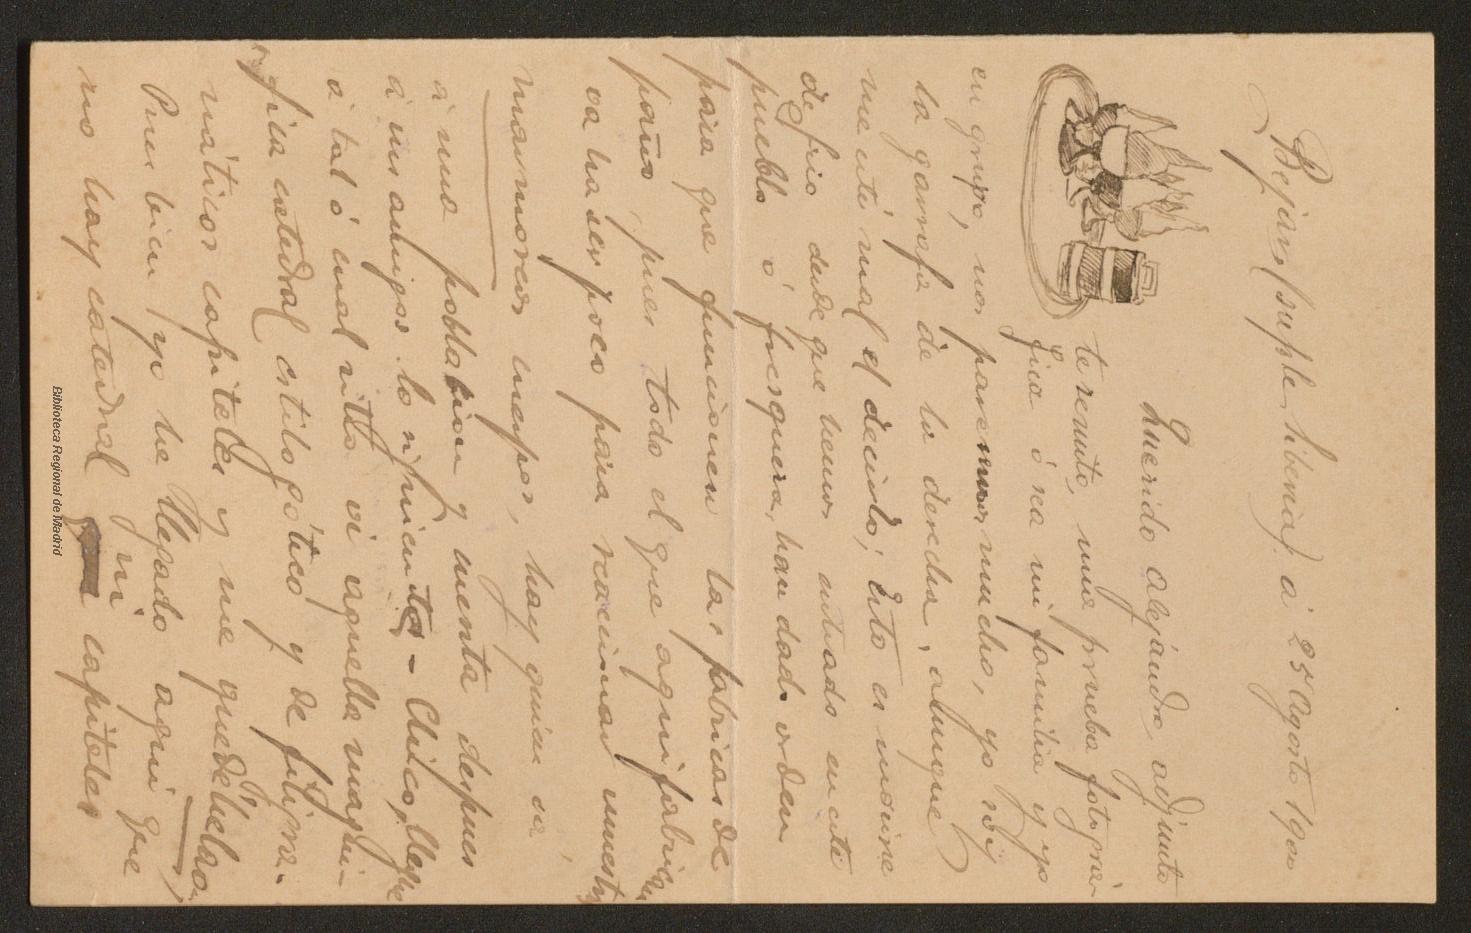 Bejar (suple, hiberia) á 25 Agosto 190
Querido Alejandro, adjunto
te remito, una prueba fotográ-
fica ó sea mi familia y yo
en grupo, nos parecemos mucho, yo soy
la garrafa de la derecha, aunque
me esté mal el decirlo; Esto es
de frio desde que hemos entrado en este
pueblo ó fresquera, han dado orden
para que funcionen las fabricas de
paños, pues todo el que aqui fabrican
va ha ser poco para
nuestros cuerpos, hay quien va
á una poblacion y cuenta despues
á sus amigos lo siguiente - Chico, llegue
á tal ó cual sitio vi aquella magni-
fica catedral estilo gótico y de
capiteles y me quedé helao
Pues bien yo he llegado aqui que
no hay catedral ni capiteles
Biblioteca Regional de Madrid